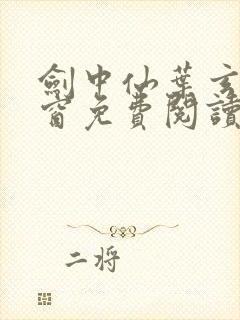 劍中仙葉玄
窗免費閱讀
二將